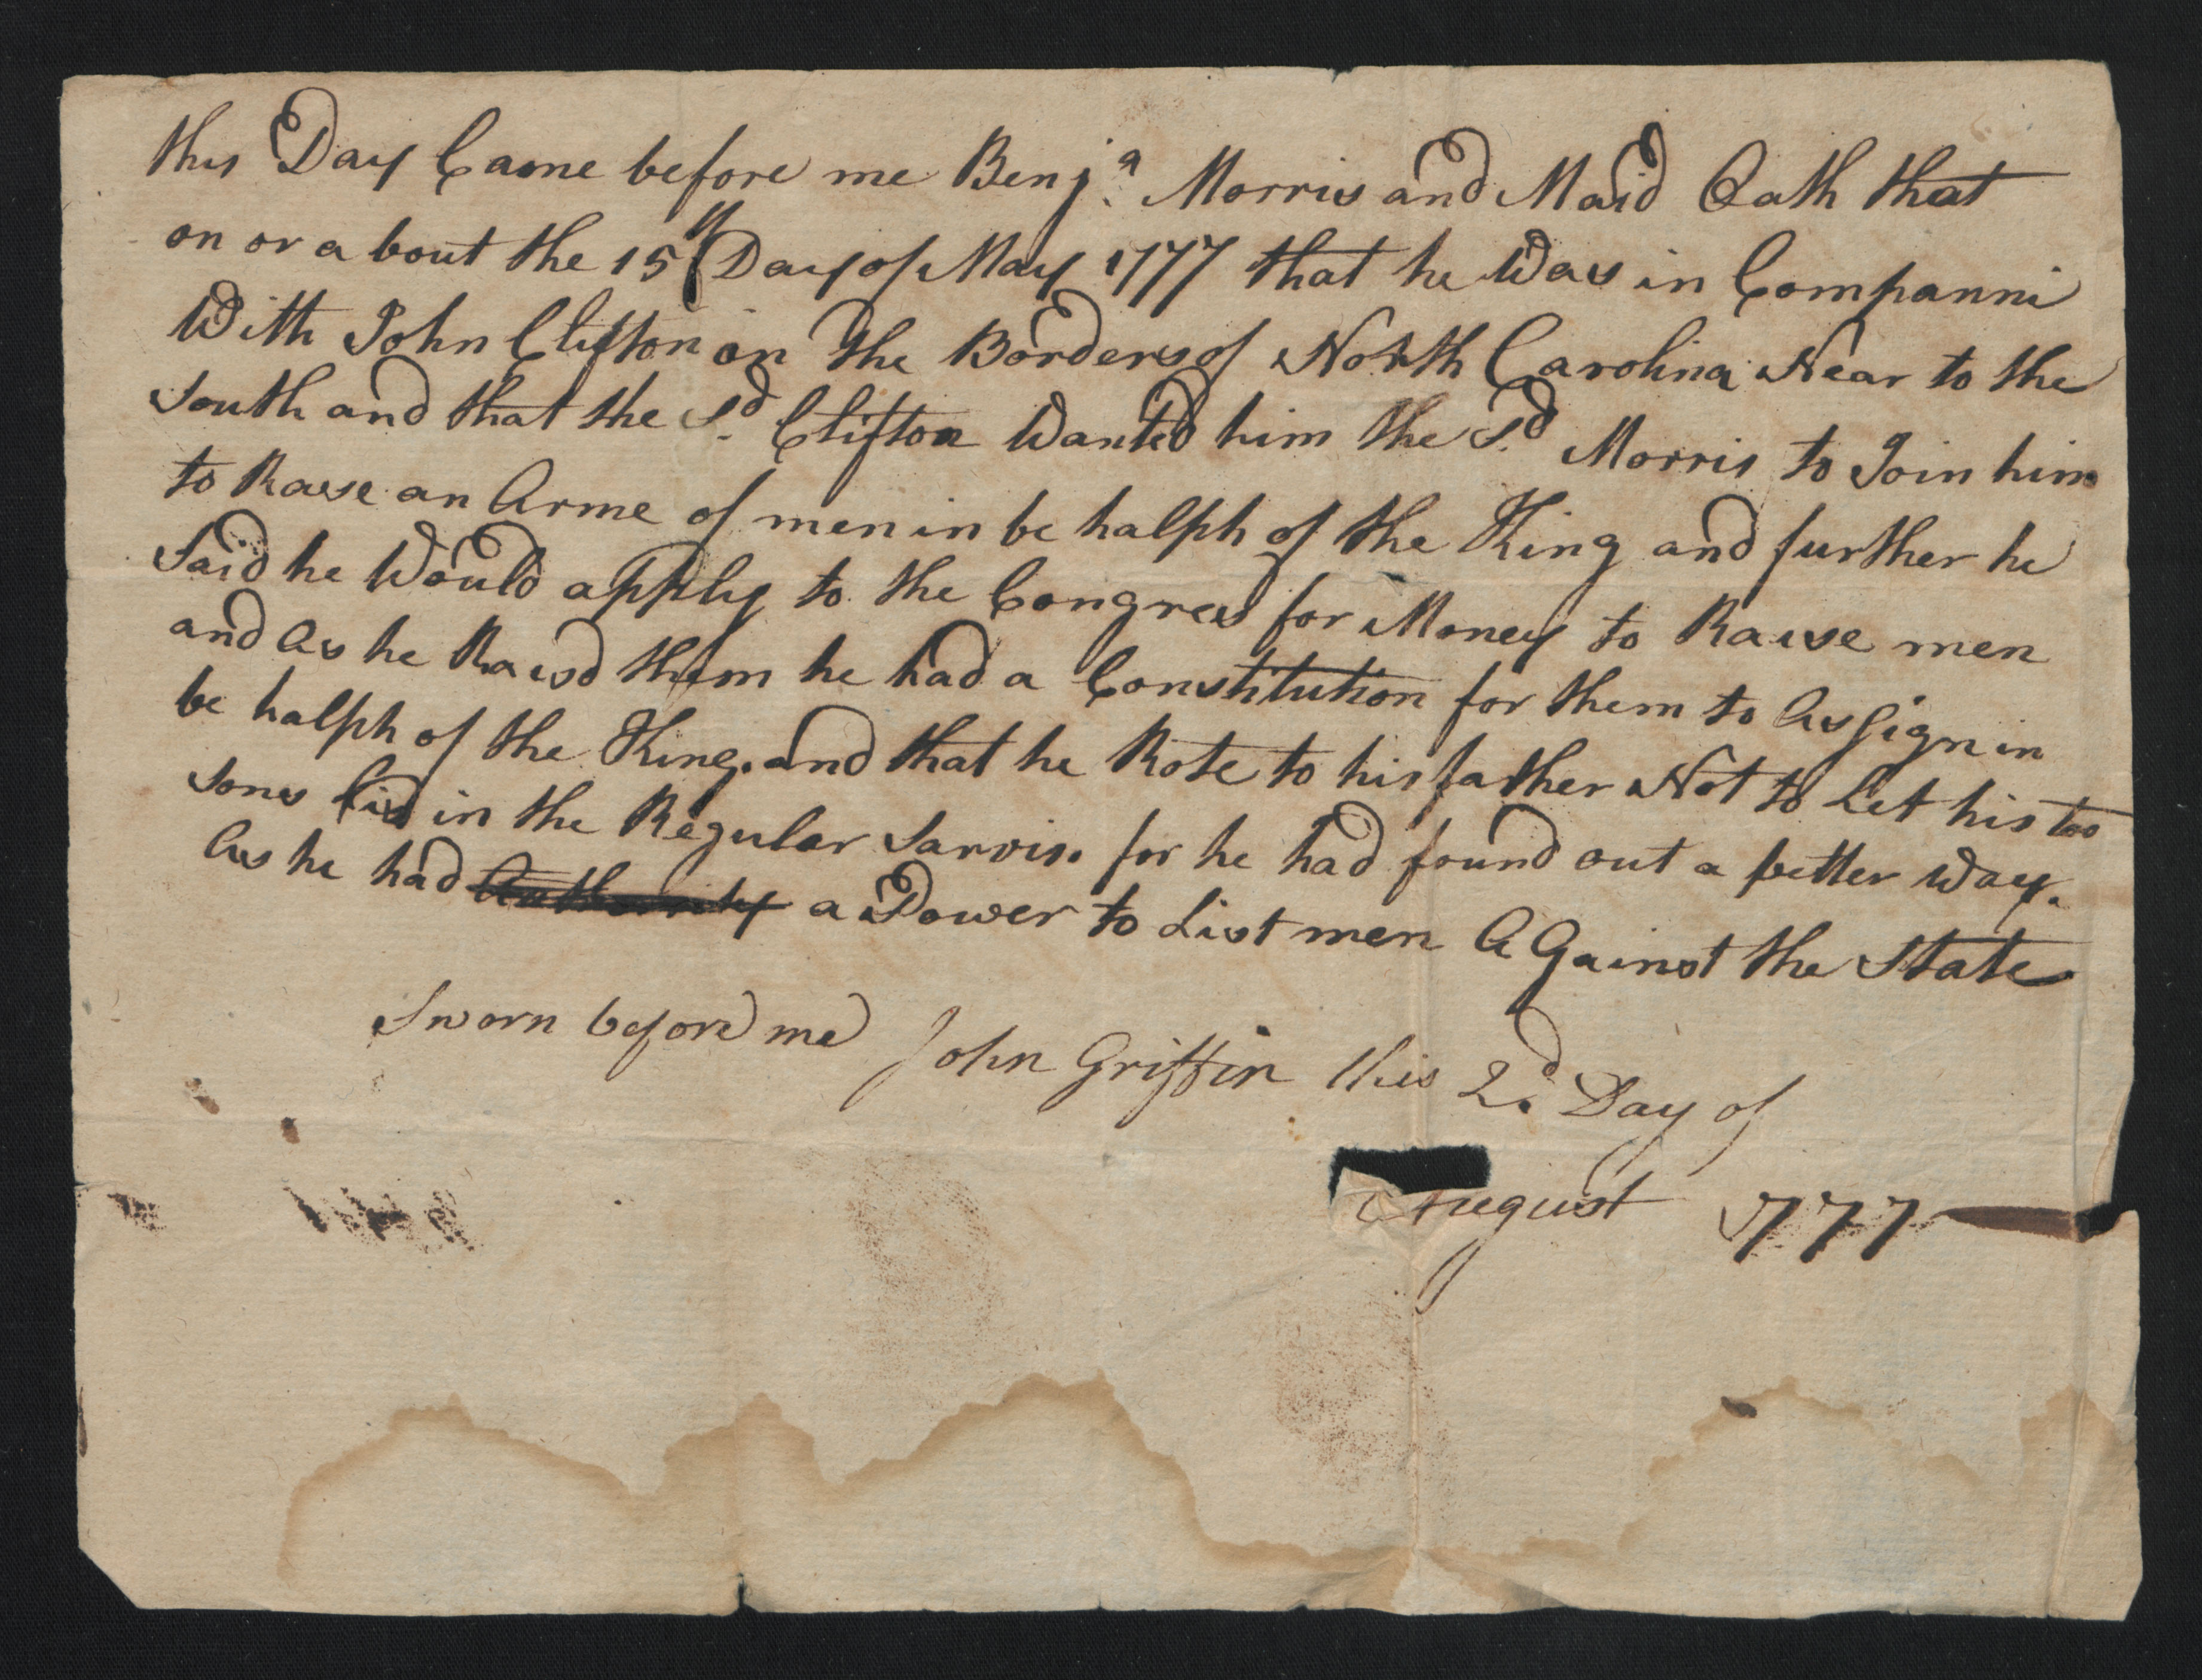 this Day Came before me Benjª. Morris and Maid Oath that
on or a bout the 15th Day of May 1777 that he Was in Companni
With John Clifton on the Borders of North Carolina Near to the
South and that the Sd. Clifton Wanted him the Sd. Morris to Join him
to Raise an Arme of men in be halph of the King and further he
Said he Would apply to the Congress for Money to Raise men
and As he Raisd them he had a Constitution for them to As Sign in
be halph of the King. and that he Rote to his father Not to Let his too
Sons in the Regular Sarvis. for he had found out a better Way.
As he had Authority a Power to List men A Gainst the State
Sworn before me John Griffin this 2d. Day of
August 1777